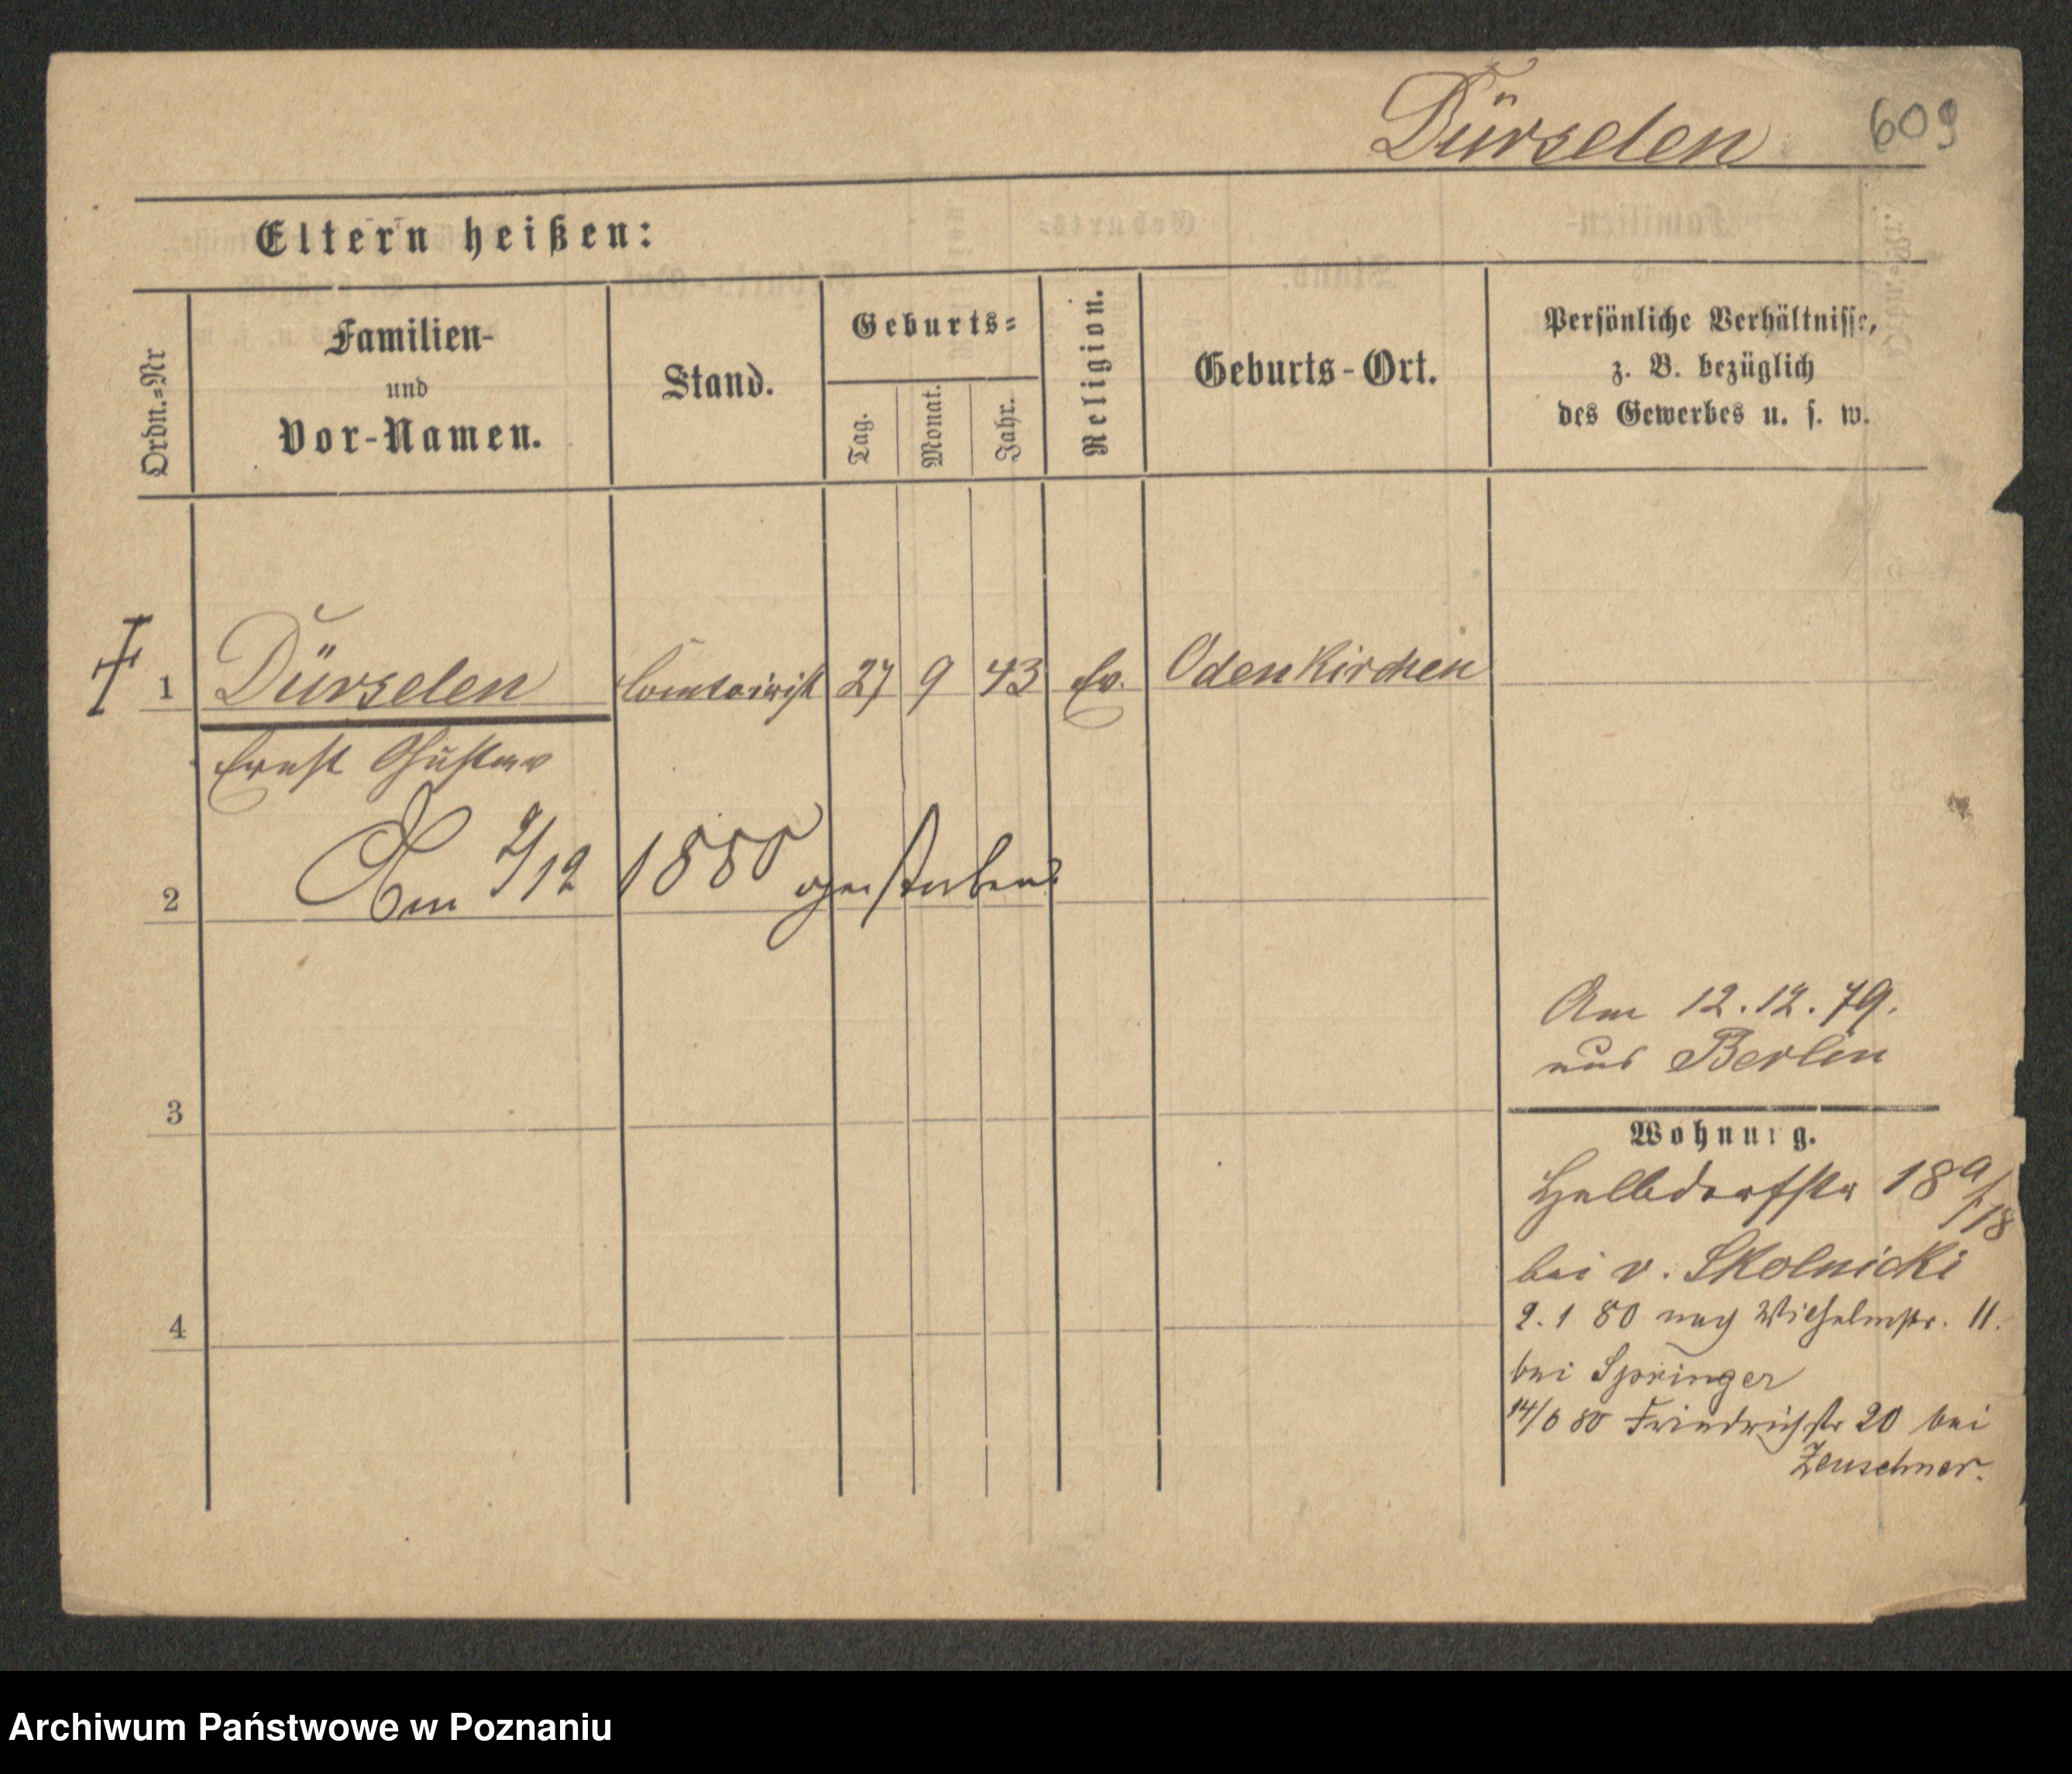 Dürselen 609
Eltern heißen:
Ordn.=Nr
Familien-
und
Vor-Namen.
Stand.
Geburts=
Tag.
Monat.
Jahr.
Religion.
Geburts-Ort.
Persönliche Verhältnisse,
z. B. bezüglich
des Gewerbes u. s. w.
1 Dürselen Comtoirist 27 9 43 Ev. Odenkirchen
Ernst Gustav
2 Am /12 1880 gestorben
Am 12.12.79.
aus Berlin
3
Wohnung.
Halbdorfstr 18 a/18
bei v. Skolnicki
2. 1 80 nach Wilhelmstr. 11.
4
bei Springer
14/6 80 Friedrichstr 20 bei
Zeuschner.
Archiwum Państwowe w Poznaniu